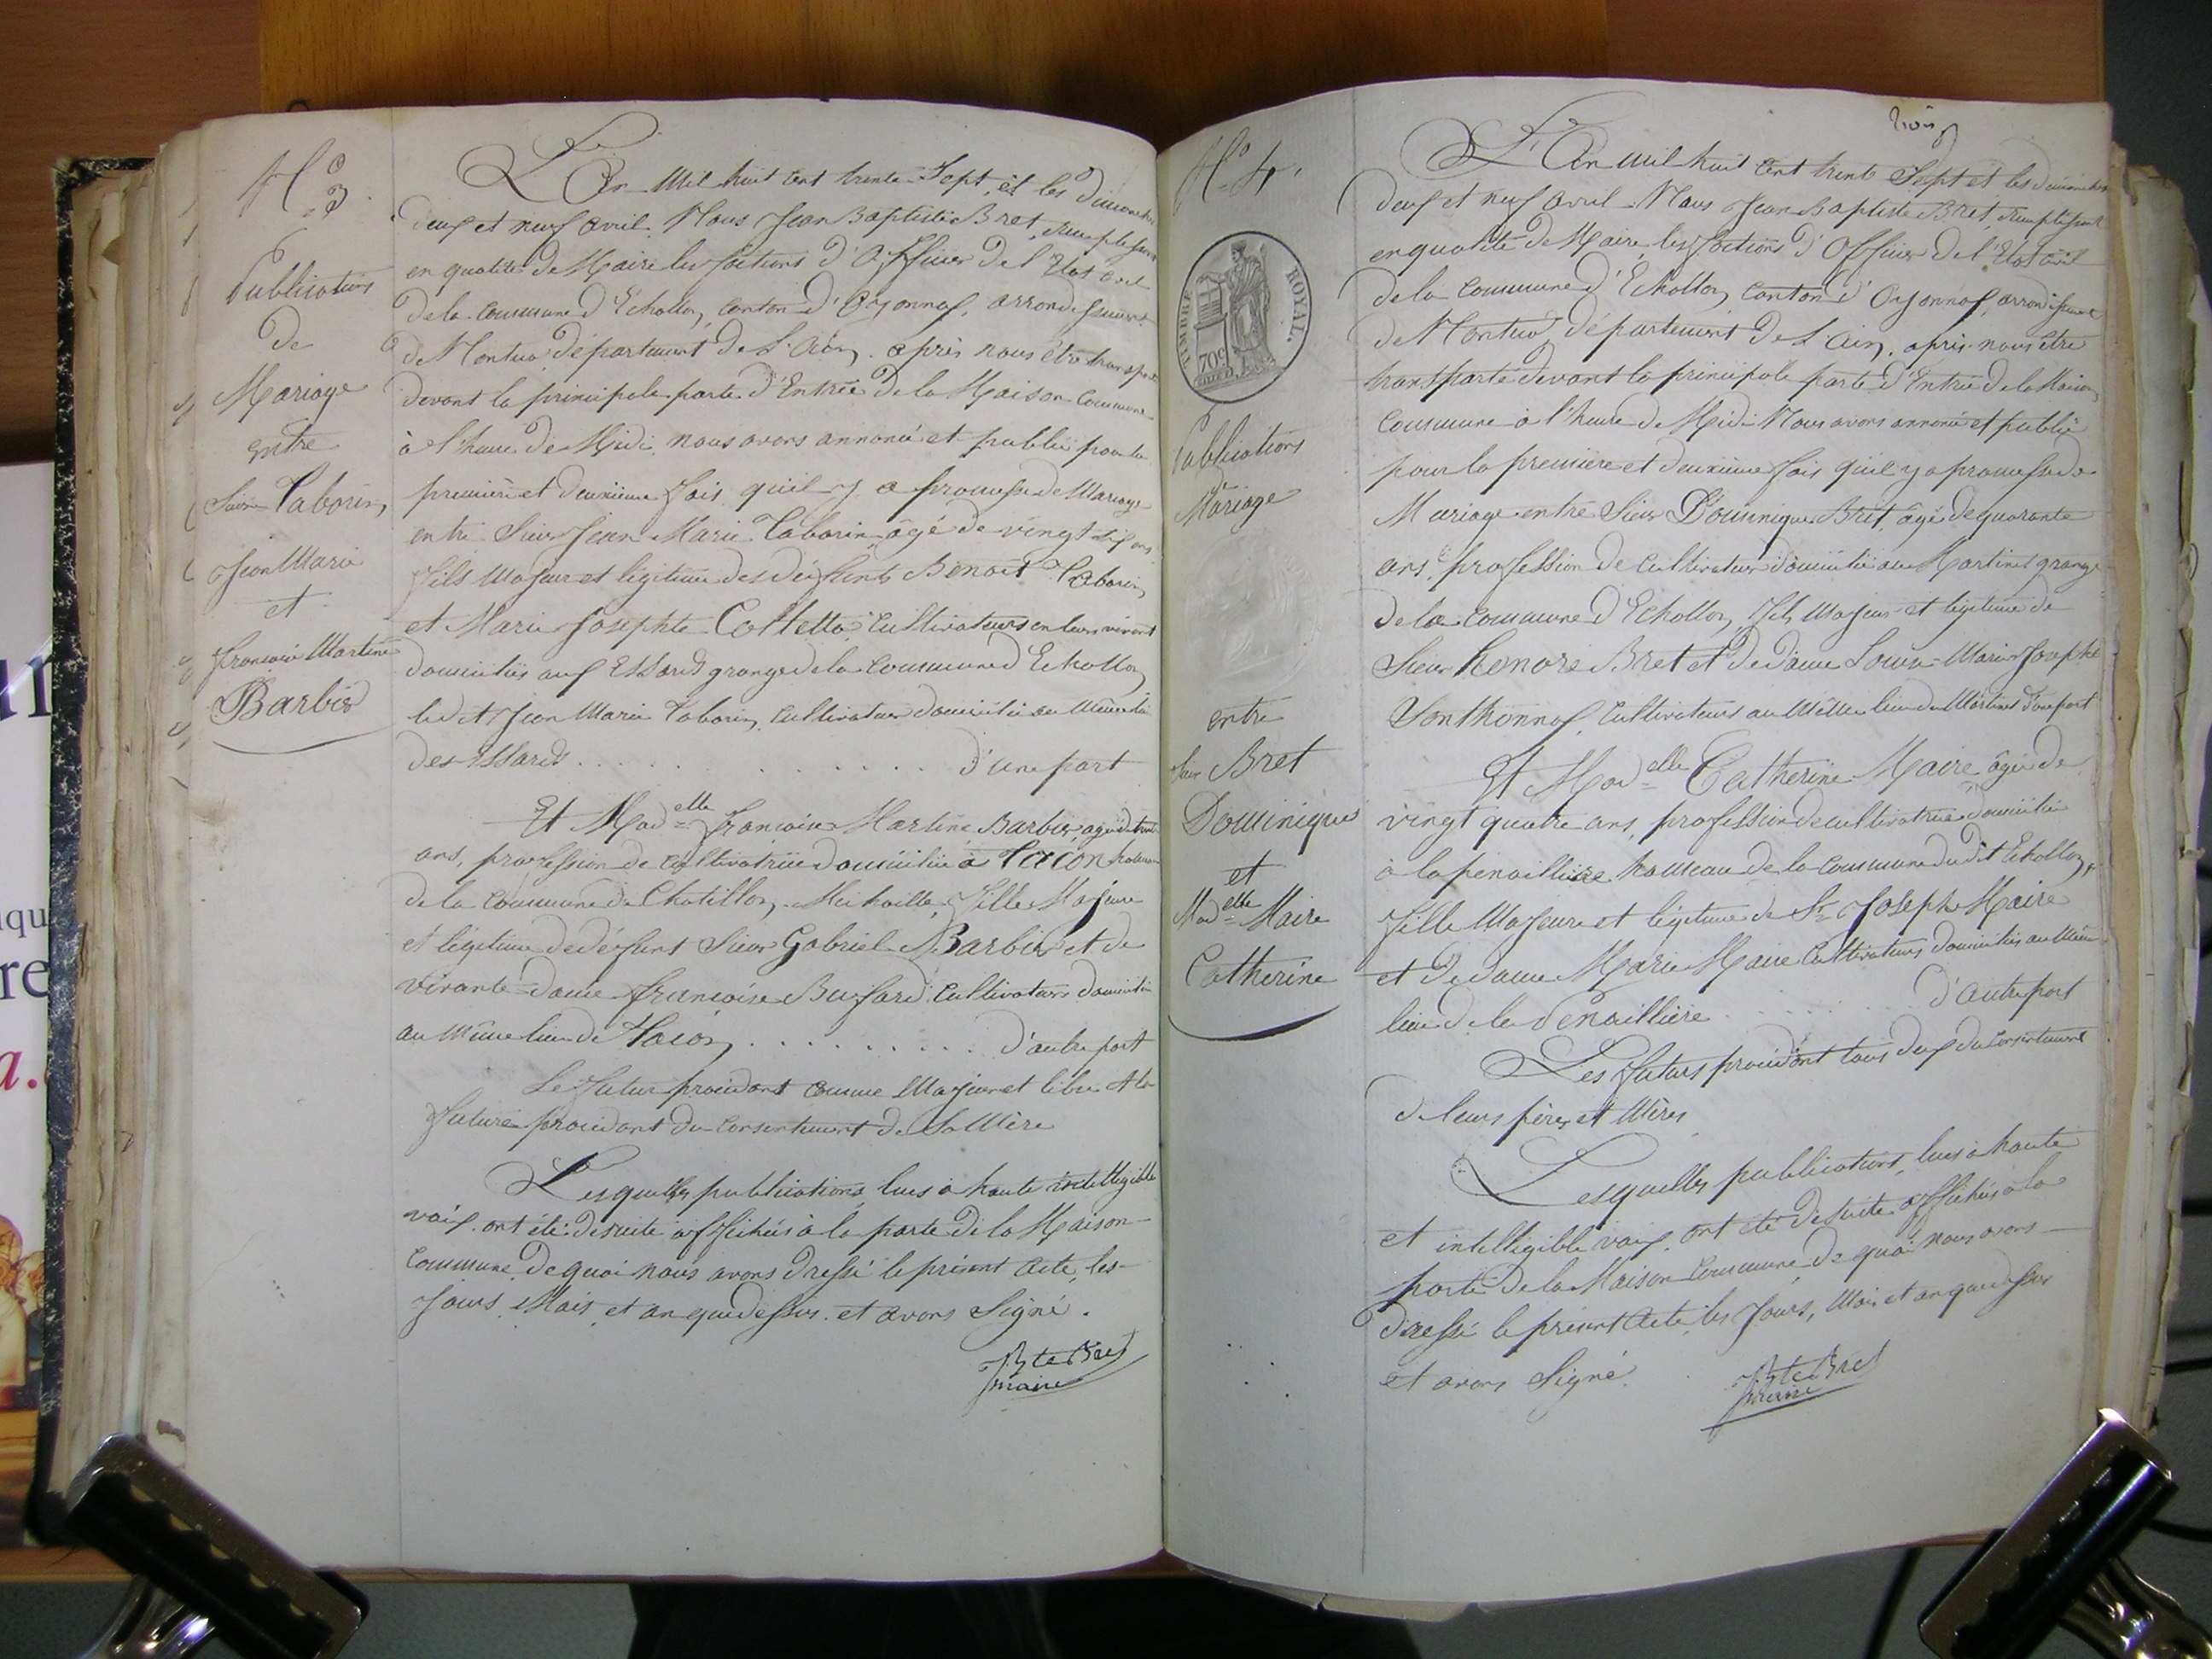 N.° 3.
Publications
de
Mariage
entre
Sieur Taborin,
Jean Marie
et
Françoise Martine
Barbier
L'An mil huit cent trente-Sept, et les dimanches
deux et neuf avril. Nous Jean Baptiste Bret, remplissant
en qualité de Maire les foctions d'Officier de l'Etat civil
de la Commune d'Echallon, canton d'Oyonnax, arrondissement
de Nantua département de L'Ain, après nous être transporté
devant la principale porte d'Entrée de la Maison Commune
à l'heure de Midi, nous avons annoncé et publié pour la
première et deuxième fois qu'il y a promesse de Mariage
entre Sieur Jean Marie Taborin, âgé de vingt six ans
fils majeur et légitime des défunts Benoit Taborin,
et Marie Josephte Colletta, Cultivateurs en leurs vivant
domiciliés aux Essards grange de la Commune d'Echallon,
ledit Jean Marie Taborin, Cultivateur domicilié au même lieu
des Essards . . . . . . . . . . d'une part
Et Mad.elle Françoise Martine Barbier, agée de trente
ans, profession de cultivatrice domiciliée à Tacon hameau
de la Commune de Chatillon-Michaille, fille Majeure
et légitime de défunt Sieur Gabriel Barbier et de
vivante dame françoise Bussard, Cultivateurs domiciliés
au même lieu de Tacon, . . . . . . . . . d'autre part
Le futur procédant comme Majeur et libre et la
future procédant du consentement de Sa Mère
Lesquelles publications lues à haute intelligible
voix, ont été de suite affichées à la porte de la Maison
Commune, de quoi nous avons dressé le présent Acte, les
Jours, Mois, et an que dessus, et avons Signé.
JBte Bret
maire
trois
N.° 4.
TIMBRE ROYAL
709
Publications
Mariage
entre
Sieur Bret
Dominique
et
Mad.elle Maire
Catherine
L'An mil huit cent trente Sept et les dimanches
deux et neuf avril. Nous Jean Baptiste Bret, remplissant
en qualité de Maire, les foctions d'Officier de l'Etat civil
de la Commune d'Echallon, canton d'Oyonnax, arrondissement
de Nantua, département de L'ain, après nous être
transporté devant la principale porte d'Entrée de la Maison
Commune à l'heure de Midi. Nous avons annoncé et publié
pour la première et deuxième fois qu'il y a promesse de
Mariage entre Sieur Dominique Bret, âgé de quarante
ans, profession de Cultivateur domicilié au Martinet grange
de la Commune d'Echallon, fils majeur et légitime de
Sieur Honoré Bret et de dame Louise Marie Josephe
Sonthonnax, Cultivateurs au même lieu du Martinet d'une part
Et Mad.elle Catherine Maire âgée de
vingt quatre ans, profession de cultivatrice domiciliée
à la penaillière hameau de la Commune du dit Echallon,
fille Majeure et légitime de St. Joseph Maire
et de dame Marie Maire Cultivateurs domiciliés au même
lieu de la Penaillière . . . . . . . d'autre part
Les futurs procédant tous deux du Consentement
de leurs pères et Mères
Lesquelles publications, lues à haute
et intelligible voix, ont été de Suite affichées à la
porte de la Maison Commune, de quoi nous avons
dressé le présent Acte, les Jours, Mois et an que dessus
et avons Signé.
JBte Bret
maire